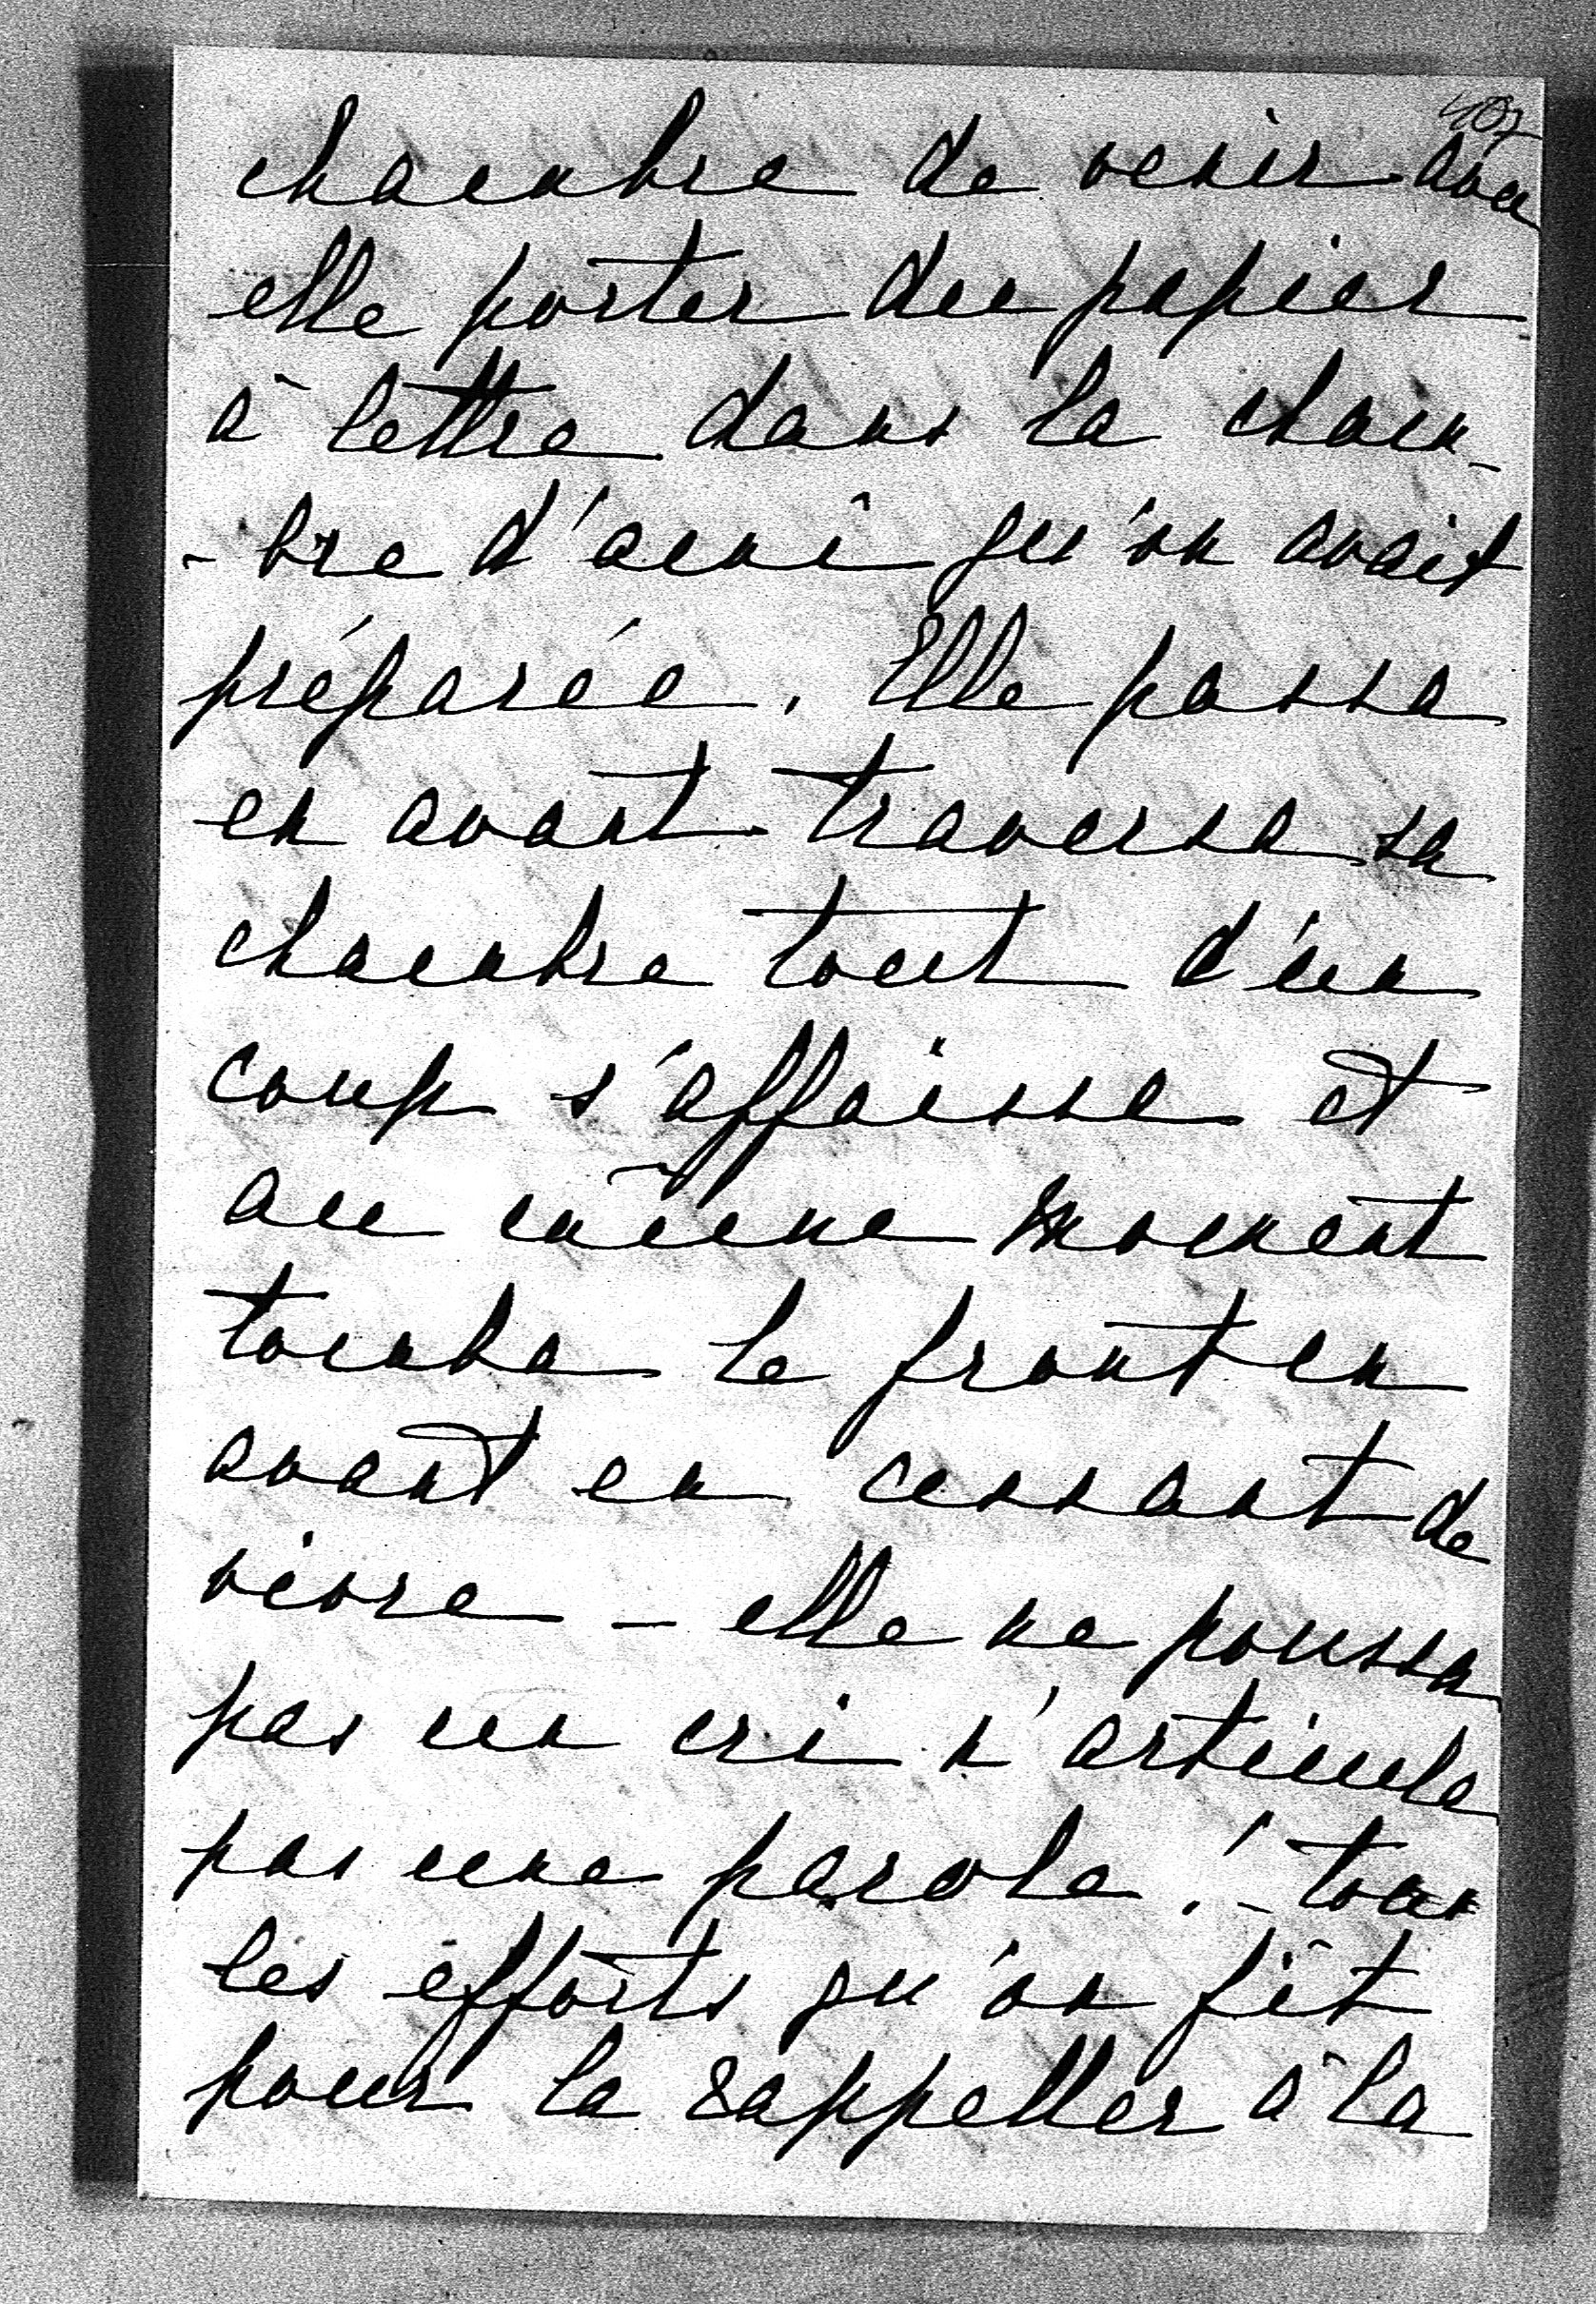 407
chambre de venir avec
elle porter du papier
à lettre dans la cham-
-bre d'ami qu'on avait
préparée. Elle passa
en avant traversa sa
chambre tout d'un
coup s'affaissa et
au même moment
tomba le front en
avant en cessant de
vivre - elle ne poussa
pas un cri n'articula
pas une parole! - tous
les efforts qu'on fit
pour la rappeller à la